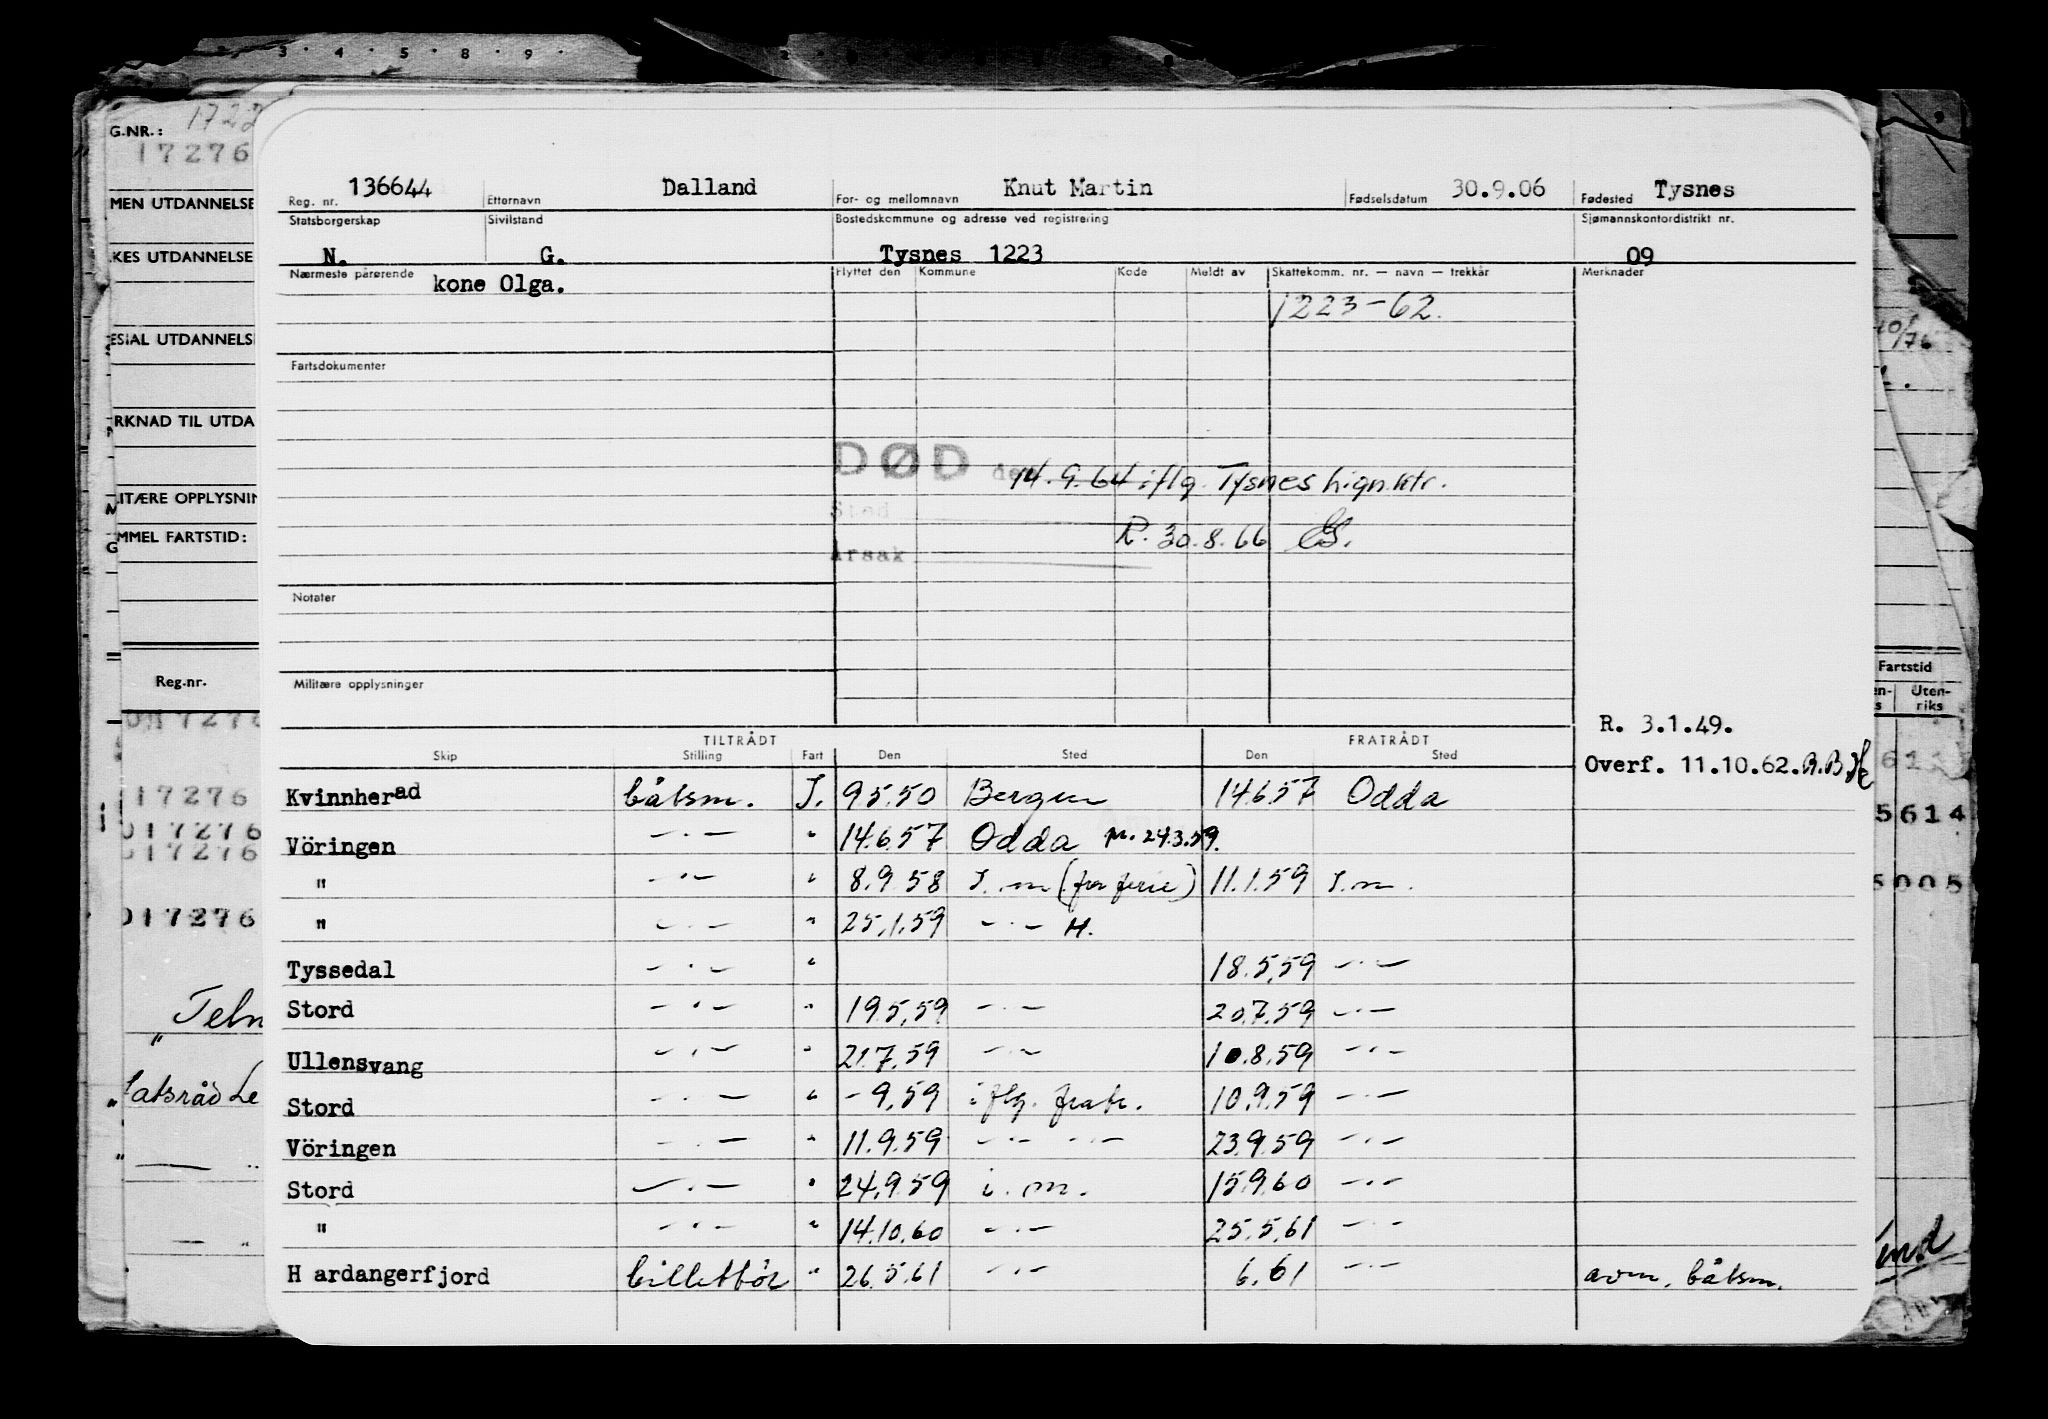 136644 Dalland Knut Martin 30.9.06 Tysnes
Reg. nr. Etternavn For- og mellomnavn Fødselsdatum Fødested
Statsborgerskap Sivilstand Bostedskommune og adresse ved registrering Sjømannskontordistrikt nr.
N. G. Tysnes 1223 09
Nærmeste pårørende Flyttet den Kommune Kode Meldt av Skattekomm. nr. — navn — trekkår Merknader
kone Olga.
1223-62.
Fartsdokumenter
DØD den 14.9.64 iflg. Tysnes lign.ktr.
Sted
R. 30.8.66
Årsak
Notater
Militære opplysninger
R. 3.1.49.
Overf. 11.10.62.
TILTRÅDT FRATRÅDT
Skip Stilling Fart Den Sted Den Sted
Kvinnherad båtsm. I. 9.5.50 Bergen 14.6.57 Odda
Vöringen —·— " 14.6.57 Odda m. 24.3.59.
" —·— " 8.9.58 I.m (fra ferie) 11.1.59 I.m.
" —·— " 25.1.59 —·— H.
Tyssedal —·— " 18.5.59 —·—
Stord —·— " 19.5.59 —·— 20.7.59 —·—
Ullensvang —·— " 21.7.59 —·— 10.8.59 —·—
Stord —·— " - 9.59 iflg. fratr. 10.9.59 —·—
Vöringen —·— " 11.9.59 —·— —·— 23.9.59 —·—
Stord —·— " 24.9.59 i.m. 15.9.60 —·—
" —·— " 14.10.60 —·— 25.5.61 —·—
H ardangerfjord billettör " 26.5.61 —·— 6.61 —·— avm. båtsm.
G.NR.:
17276
MEN UTDANNELSE
KES UTDANNELSE
ESIAL UTDANNELS
RKNAD TIL UTDA
LITÆRE OPPLYSNIN
MMEL FARTSTID:
Reg.nr.
17276
17276
17276
17276
Fartstid
Uten-
riks
5614
5005